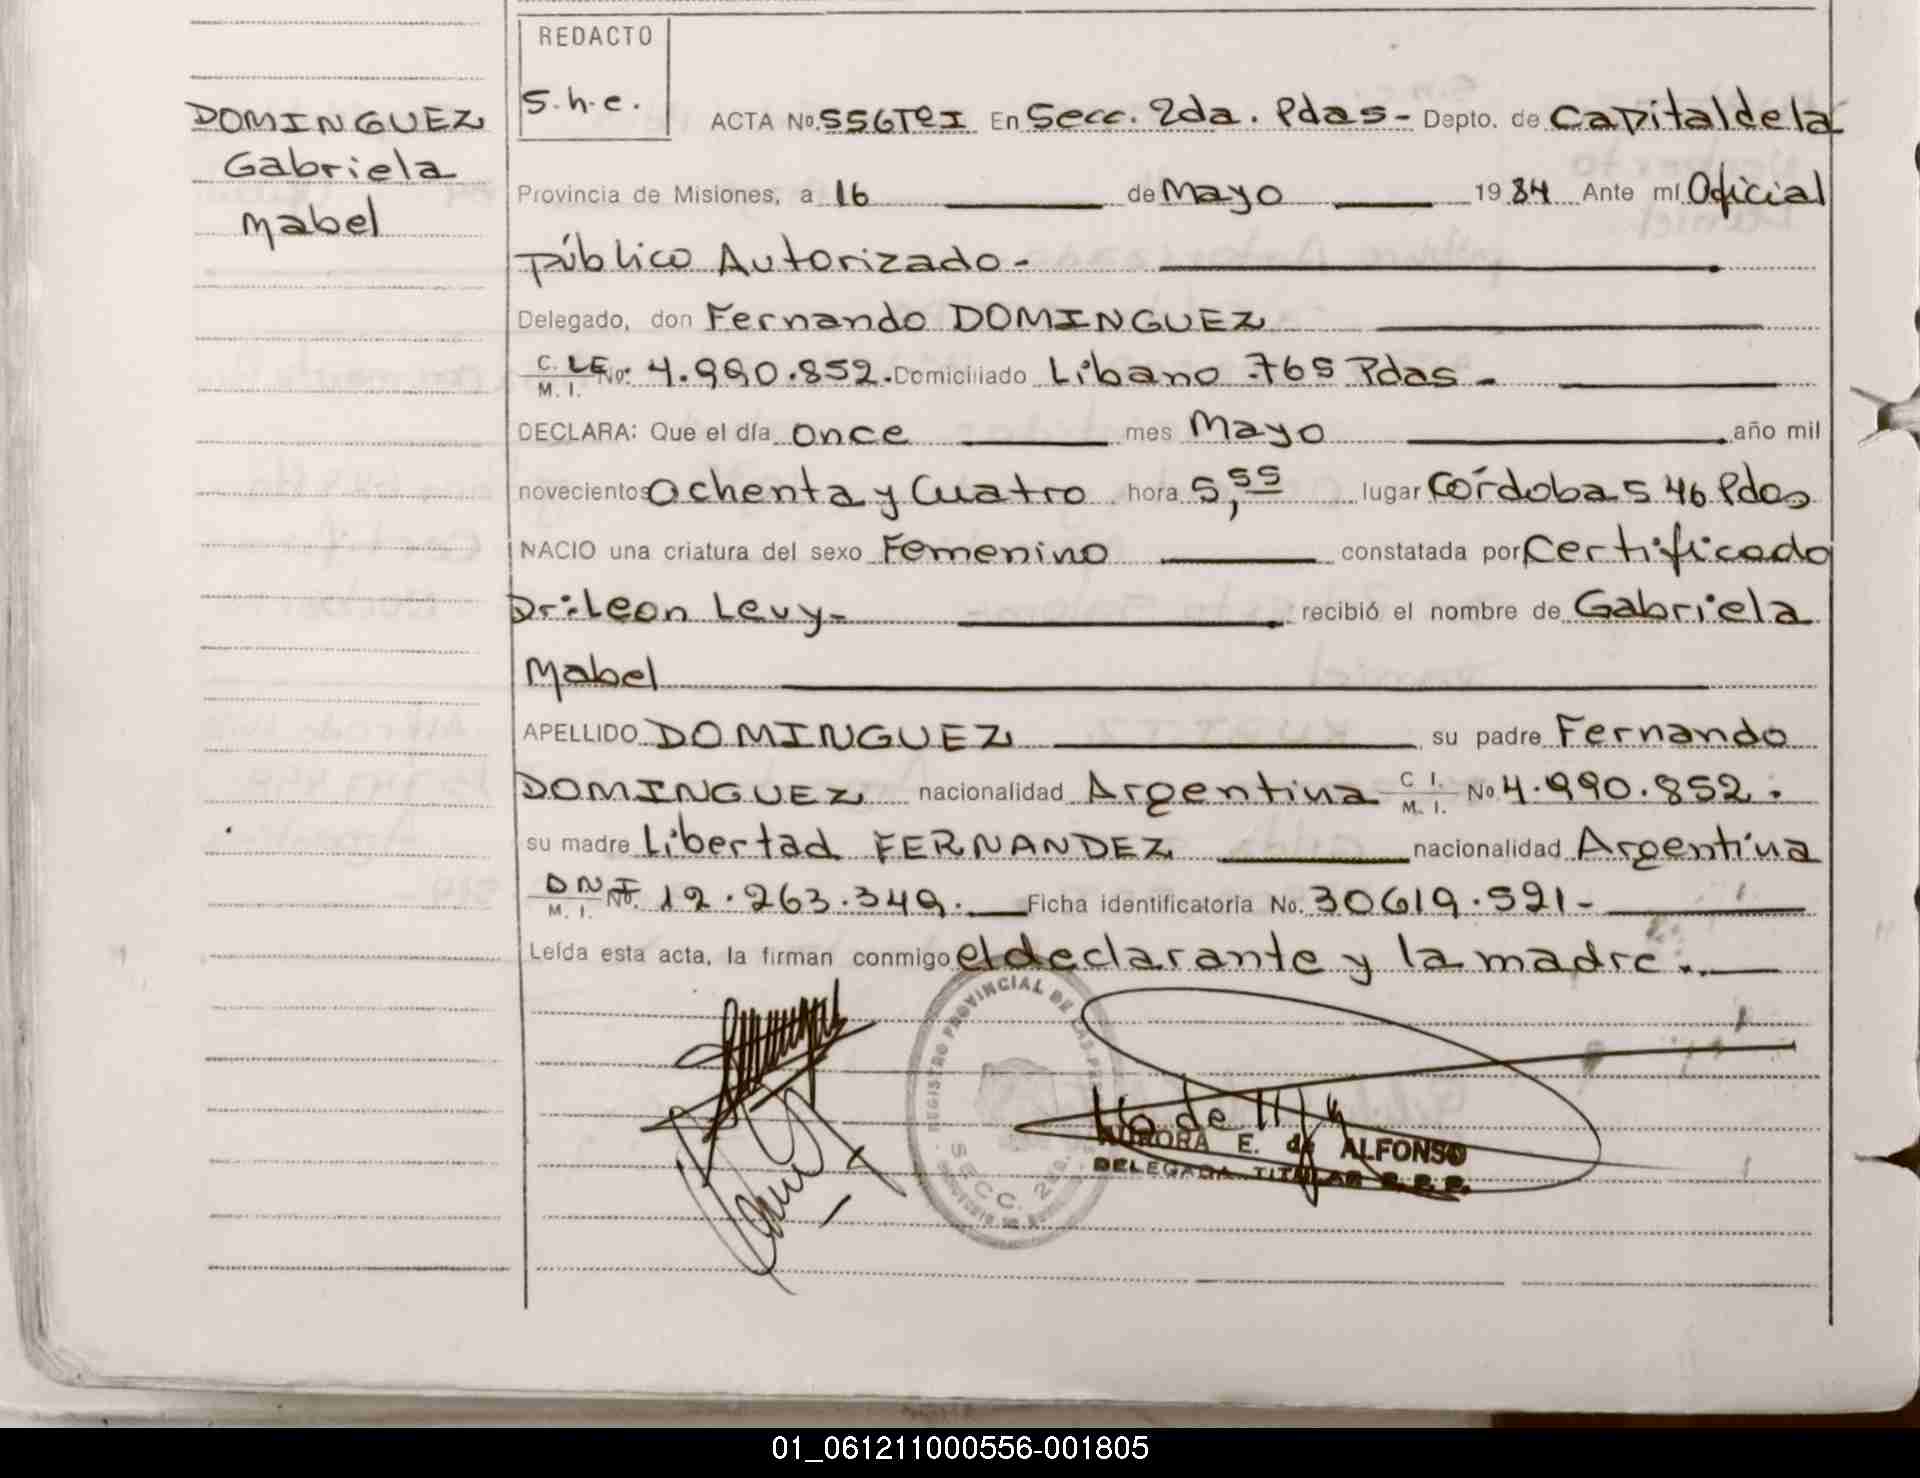 REDACTO
S.h.e.
DOMINGUEZ
Gabriela
Mabel
ACTA No. 556TºI En Secc. 2da. Pdas- Depto. de Capital de la
Provincia de Misiones, a 16 de Mayo 1984 Ante mí Oficial
Público Autorizado-
Delegado, don Fernando DOMINGUEZ
C. LE M. I. No: 4.990.852. Domiciliado Líbano 765 Pdas-
DECLARA: Que el día once mes Mayo año mil
novecientos Ochenta y Cuatro hora 5,55 lugar Córdoba 546 Pdas
NACIO una criatura del sexo Femenino constatada por Certificado
Dr: Leon Levy- recibió el nombre de Gabriela
Mabel
APELLIDO DOMINGUEZ su padre Fernando
DOMINGUEZ nacionalidad Argentina C I. M. I. No 4.990.852.
su madre Libertad FERNANDEZ nacionalidad Argentina
DNI M. I. No. 12.263.349. Ficha identificatoria No. 30619.521-
Leída esta acta, la firman conmigo el declarante y la madre.
REGISTRO PROVINCIAL DE LAS
SECC. 2da.
AURORA E. de ALFONSO
DELEGADA TITULAR R.P.P.
01_061211000556-001805